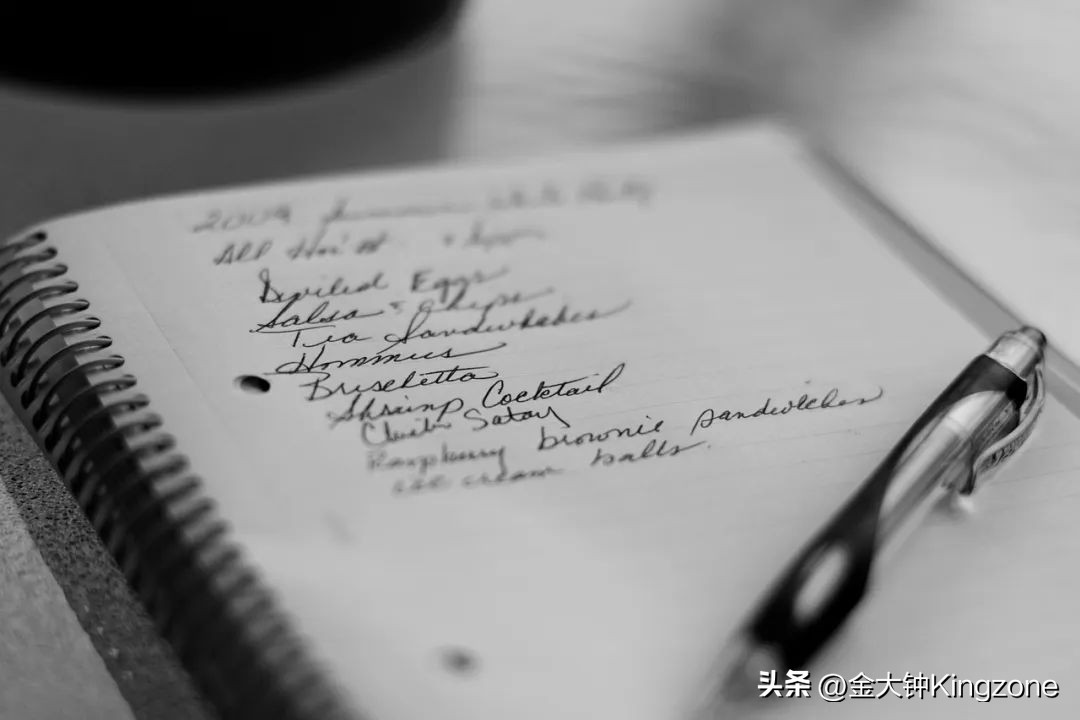 2009 Summer White Party
All Hor's
Deviled Eggs
Salsa & Chips
Tea Sandwiches
Hommus
Bruschetta
Shrimp Cocktail
Satay
Raspberry brownie sandwiches
ice cream balls.
头条 @金大钟Kingzone